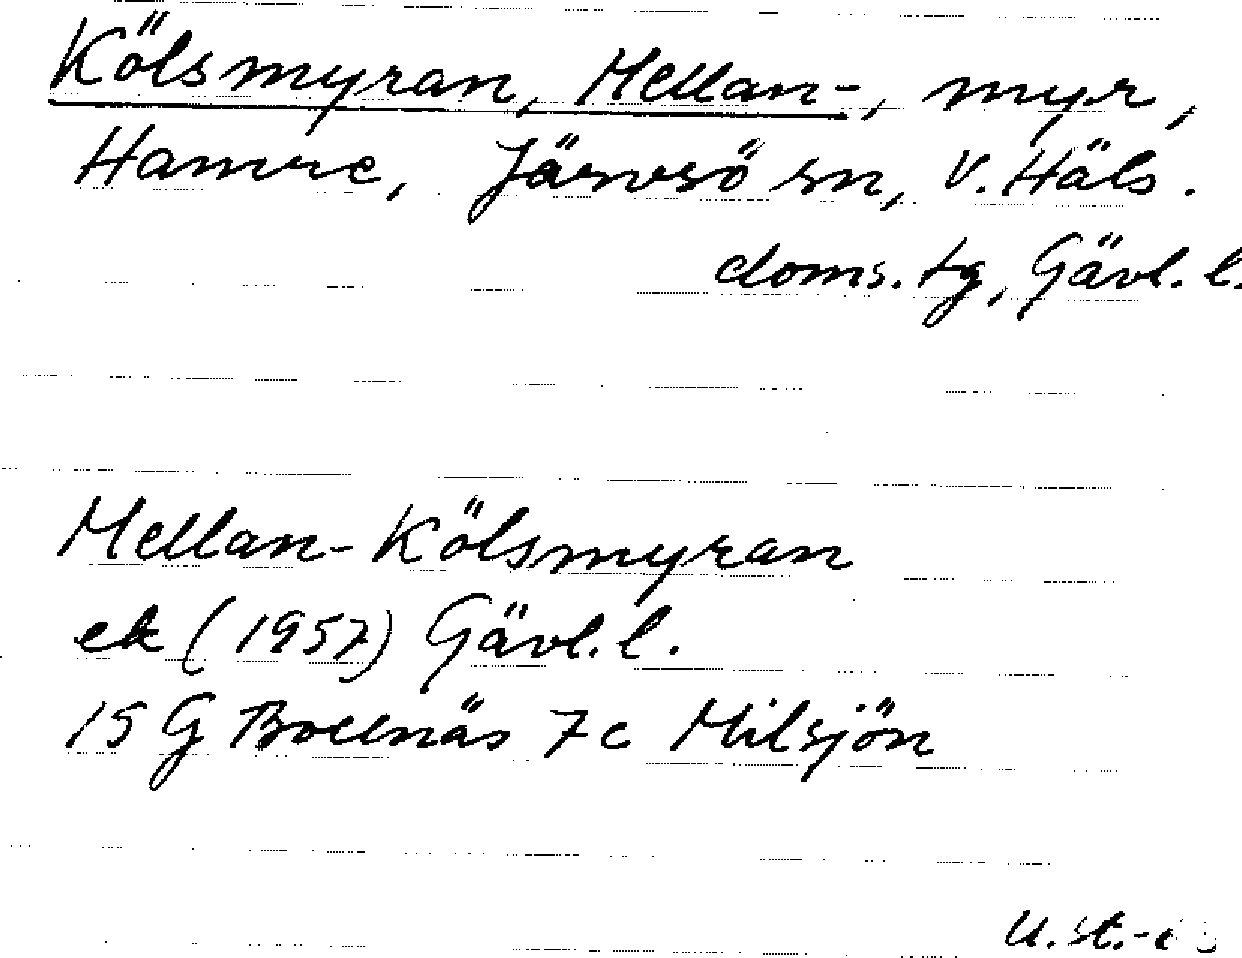 Kölsmyran, Mellan-, myr,
Hamre, Järvsö sn, V. Häls.
doms. tg, Gävl. l.
Mellan-Kölsmyran
ek (1957) Gävl. l.
15 G Bollnäs 7c Milsjön
U. St.-